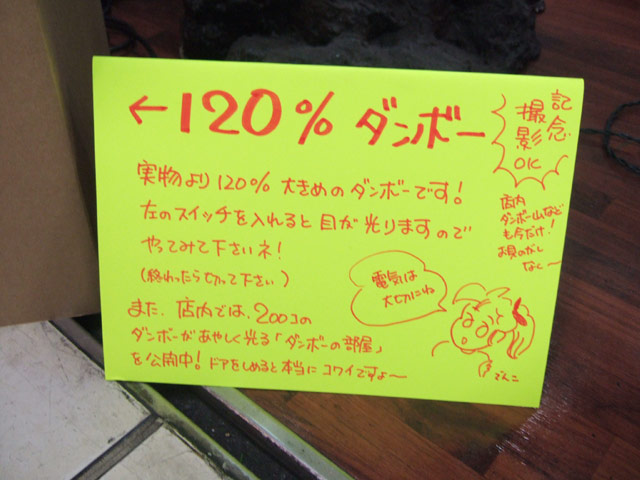 ←120% ダンボー
記念
撮影
OK
実物より120% 大きめのダンボーです!
左のスイッチを入れると目が光りますので
やってみて下さいネ!
(終わったら切って下さい)
また、店内では、200コの
ダンボーがあやしく光る「ダンボーの部屋」
を公開中! ドアをしめると本当にコワイですよ〜
店内
ダンボー山なども
も今だけ!
お見のがし
なく〜
電気は
大切にね
でんこ